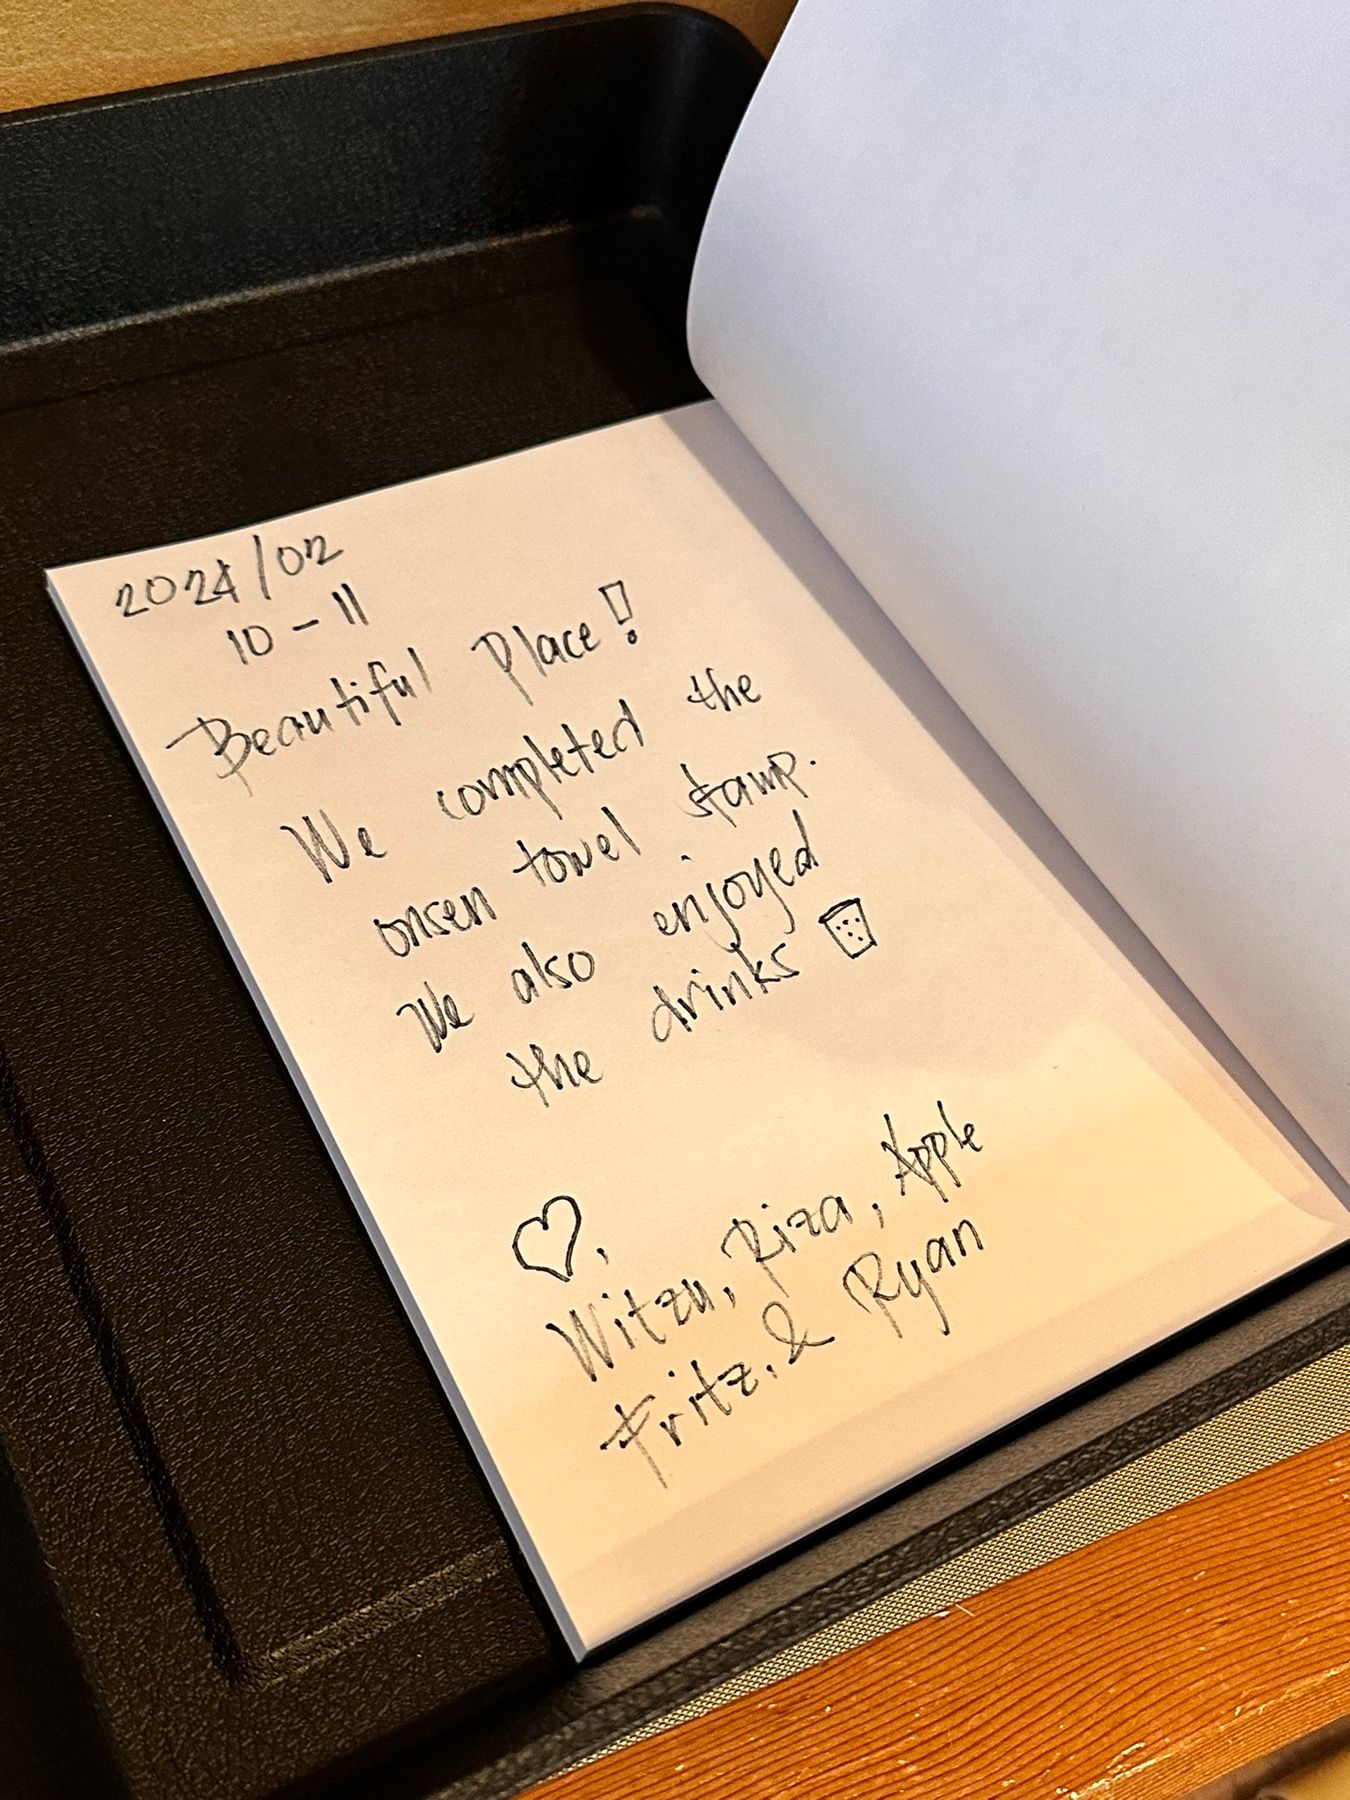 2024/02
10-11
Beautiful Place!
We completed the
onsen towel stamp.
We also enjoyed
the drinks
Witzu, Riza, Apple
Fritz, & Ryan